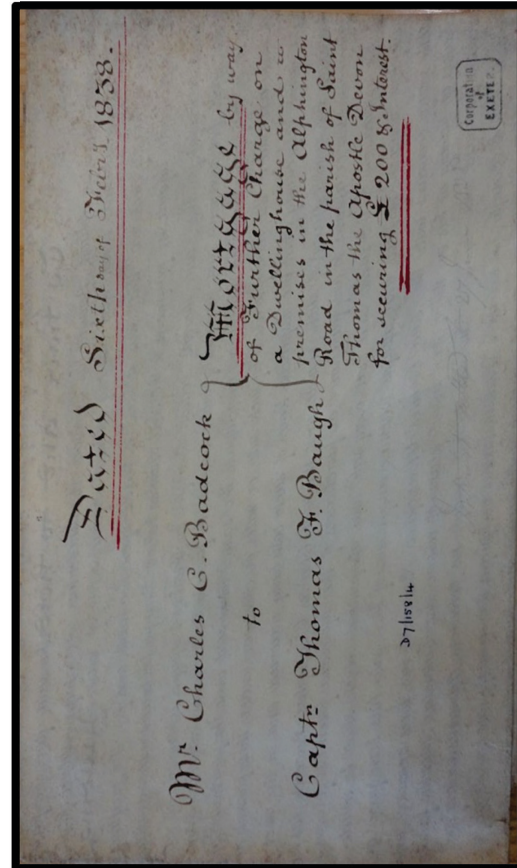 Dated Sixth day of Feby 1838.
Mr. Charles C. Badcock
to
Captn Thomas F. Baugh.
Mortgage by way
of Further Charge on
a Dwellinghouse and
premises in the Alphington
Road in the parish of Saint
Thomas the Apostle Devon
for securing £200 & Interest.
Corporation
of
EXETER
D7/158/4